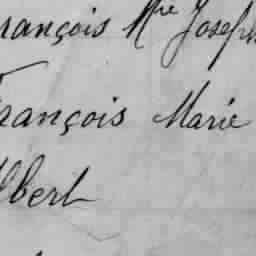 François Mie Joseph
François Marie
Albert